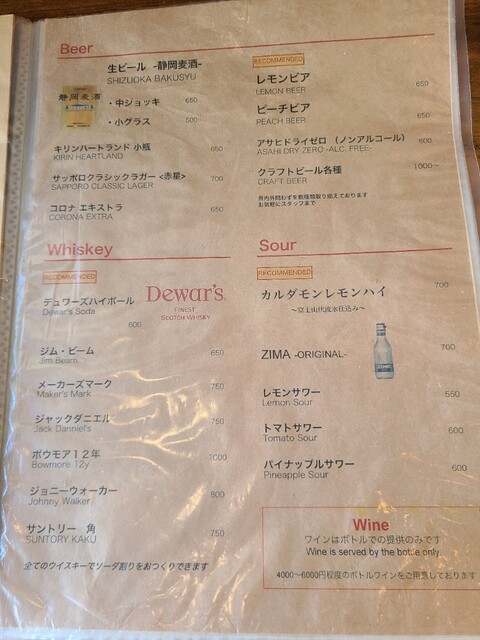 Beer
生ビール -静岡麦酒-
SHIZUOKA BAKUSYU
静岡麦酒
・中ジョッキ 650
・小グラス 500
キリンハートランド 小瓶 650
KIRIN HEARTLAND
サッポロクラシックラガー <赤星> 700
SAPPORO CLASSIC LAGER
コロナ エキストラ 650
CORONA EXTRA
RECOMMENDED
レモンビア 650
LEMON BEER
ピーチビア 650
PEACH BEER
アサヒドライゼロ （ノンアルコール） 600
ASAHI DRY ZERO -ALC. FREE-
クラフトビール各種 1000～
CRAFT BEER
県内外問わずを数種類取り揃えております
お気軽にスタッフまで
Whiskey
RECOMMENDED
デュワーズハイボール
Dewar's Soda
600
Dewar's
FINEST
SCOTCH WHISKY
ジム・ビーム 650
Jim Beam
メーカーズマーク 750
Maker's Mark
ジャックダニエル 750
Jack Danniel's
ボウモア１２年 1000
Bowmore 12y
ジョニーウォーカー 800
Johnny Walker
サントリー　角 750
SUNTORY KAKU
全てのウイスキーでソーダ割りをおつくりできます
Sour
RECOMMENDED
カルダモンレモンハイ 700
～富士山伏流水仕込み～
ZIMA -ORIGINAL- 700
レモンサワー 550
Lemon Sour
トマトサワー 600
Tomato Sour
パイナップルサワー 600
Pineapple Sour
Wine
ワインはボトルでの提供のみです
Wine is served by the bottle only.
4000～6000円程度のボトルワインをご用意しております